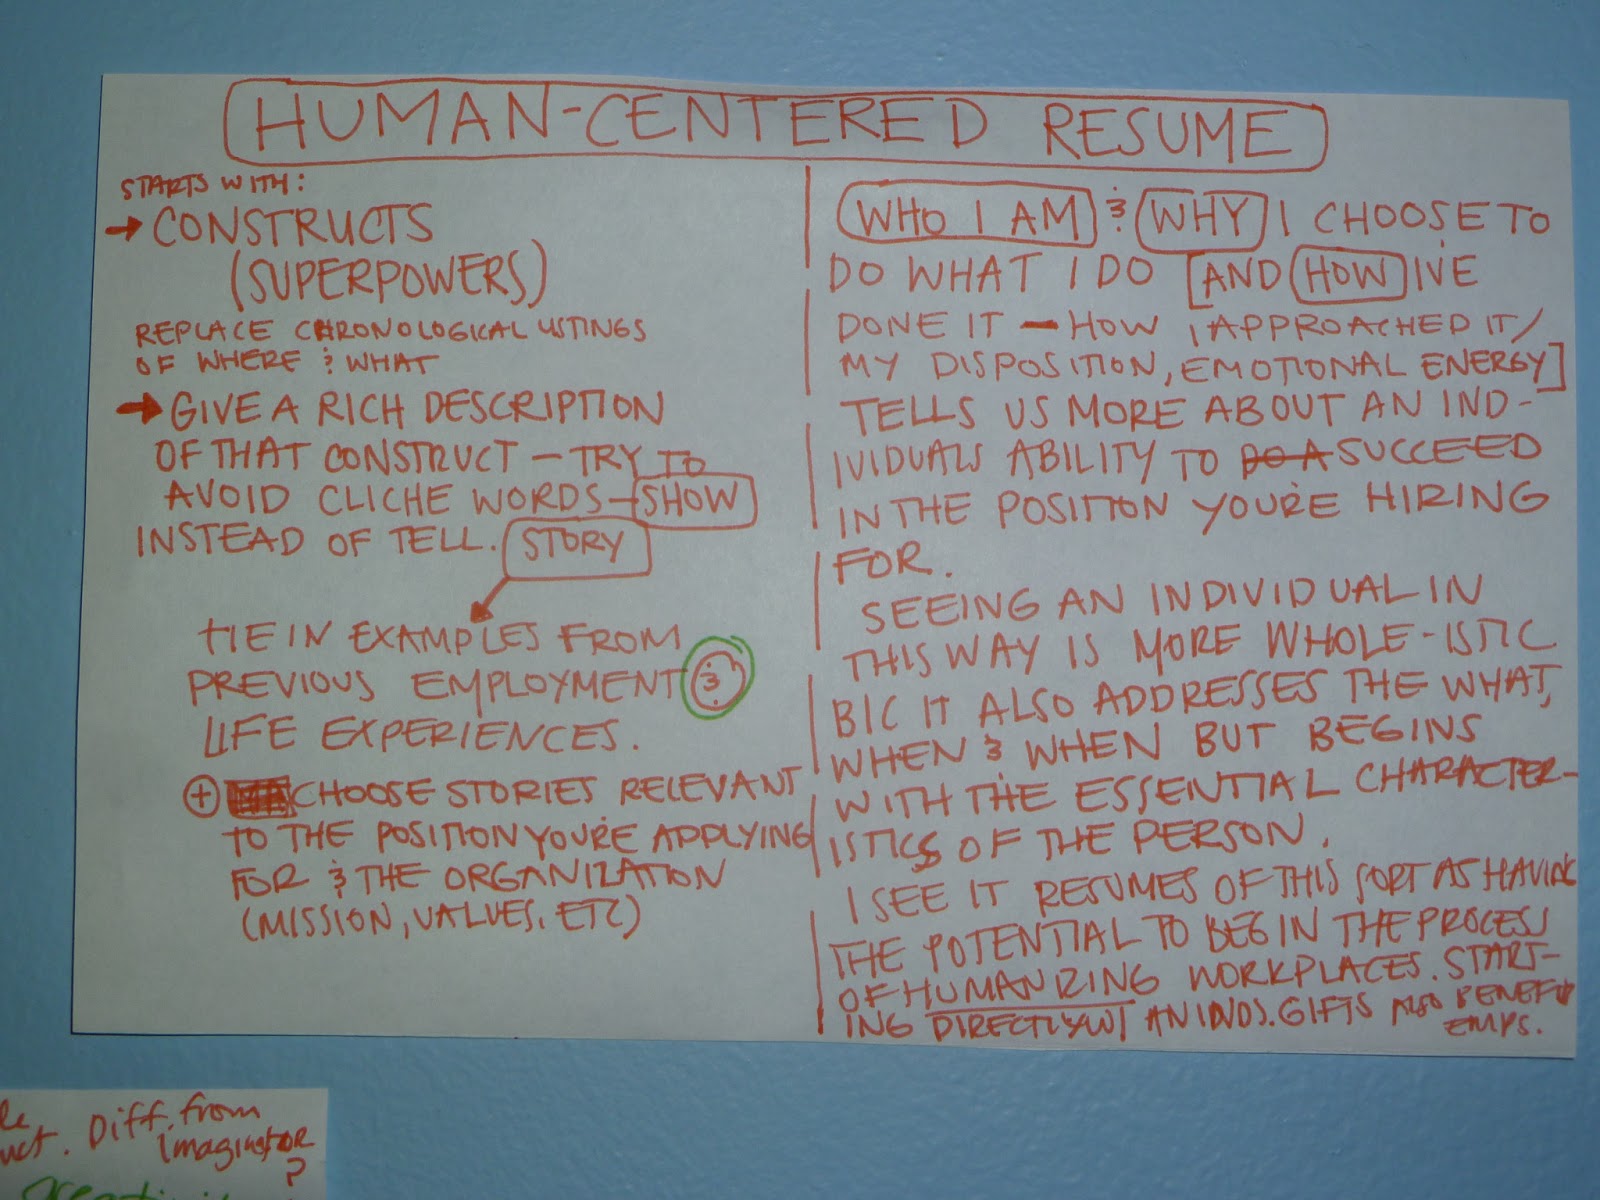 HUMAN-CENTERED RESUME
STARTS WITH:
→ CONSTRUCTS
(SUPERPOWERS)
REPLACE CHRONOLOGICAL LISTINGS
OF WHERE & WHAT
→ GIVE A RICH DESCRIPTION
OF THAT CONSTRUCT – TRY TO
AVOID CLICHE WORDS – SHOW
INSTEAD OF TELL. STORY
TIE IN EXAMPLES FROM
PREVIOUS EMPLOYMENT &
LIFE EXPERIENCES.
+ CHOOSE STORIES RELEVANT
TO THE POSITION YOU'RE APPLYING
FOR & THE ORGANIZATION
(MISSION, VALUES, ETC)
WHO I AM & WHY I CHOOSE TO
DO WHAT I DO [AND HOW I'VE
DONE IT – HOW I APPROACHED IT/
MY DISPOSITION, EMOTIONAL ENERGY]
TELLS US MORE ABOUT AN IND-
IVIDUALS ABILITY TO DO A SUCCEED
IN THE POSITION YOU'RE HIRING
FOR.
SEEING AN INDIVIDUAL IN
THIS WAY IS MORE WHOLE-ISTIC
B/C IT ALSO ADDRESSES THE WHAT,
WHEN & WHEN BUT BEGINS
WITH THE ESSENTIAL CHARACTER-
ISTICS OF THE PERSON.
I SEE IT RESUMES OF THIS SORT AS HAVING
THE POTENTIAL TO BEGIN THE PROCESS
OF HUMANIZING WORKPLACES. START-
ING DIRECTLY W/ AN INDS. GIFTS ALSO BENEFITS
EMPS.
Diff. from
imaginator
?